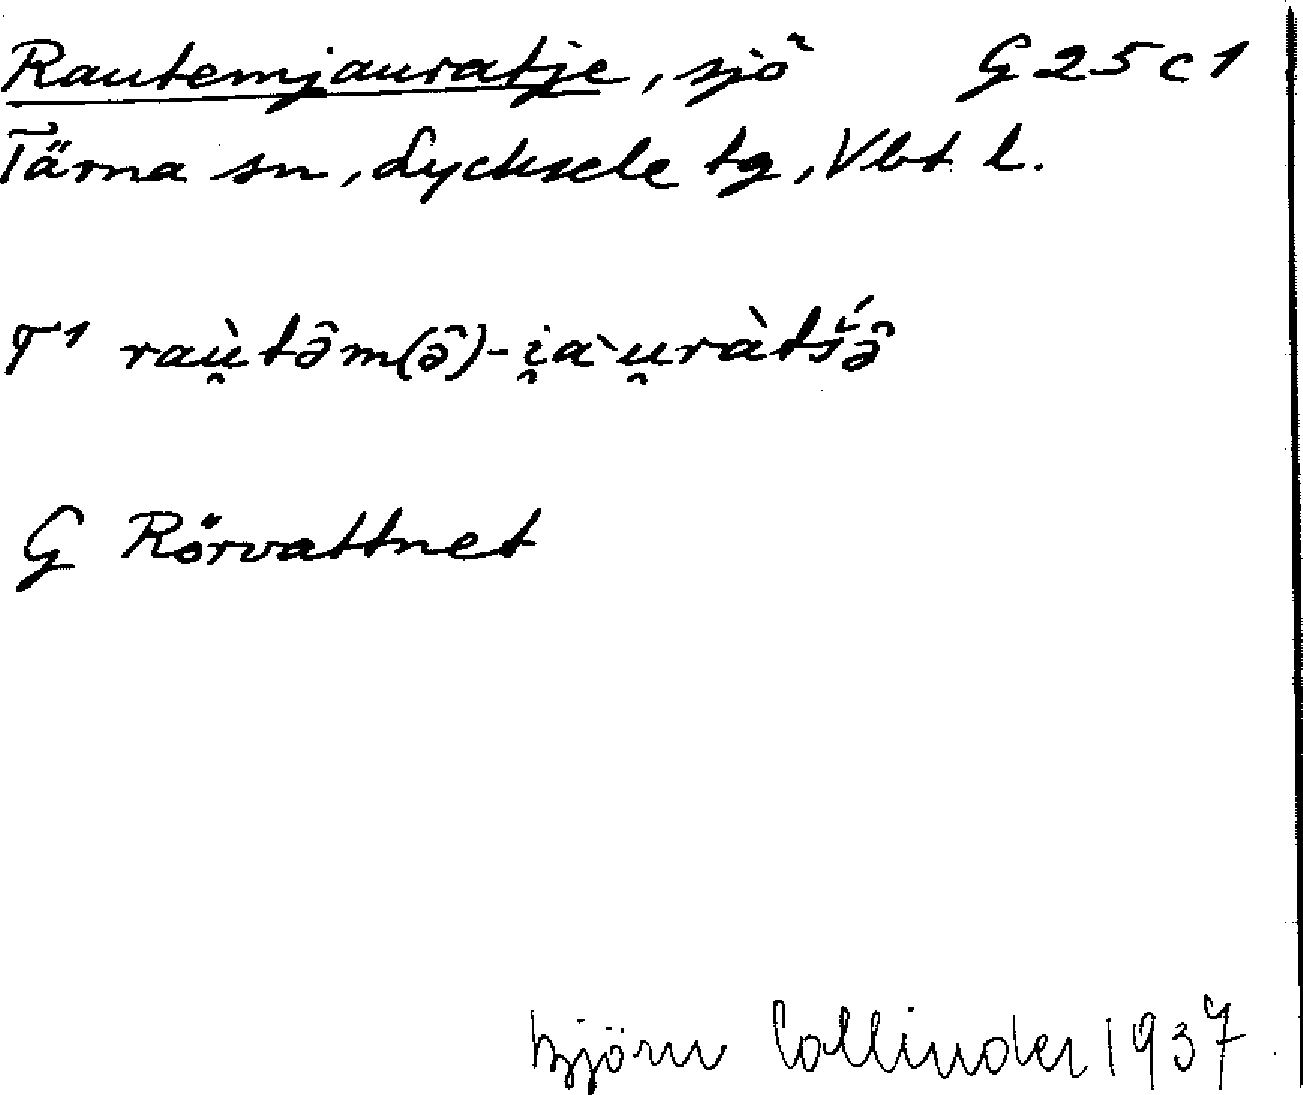 Rautemjauratje, sjö G 25 c 1
Tärna sn, Lycksele tg, Vbt l.
T1 raù̯tə̂m(ə̂)-i̯a`u̯ràtš́ə̂
G Rörvattnet
Björn Collinder 1937